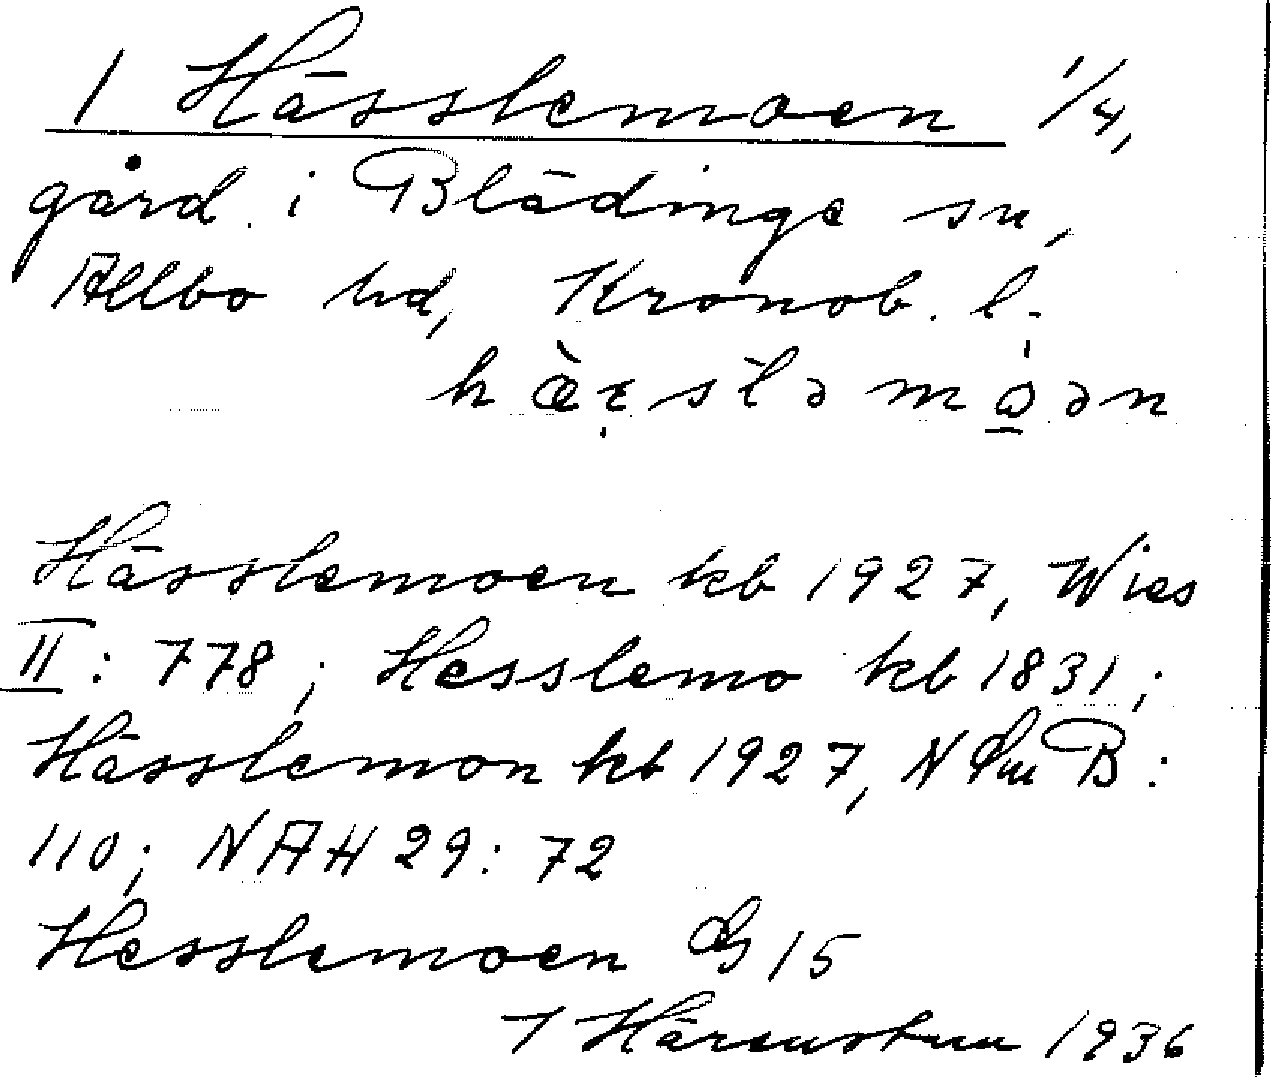 1 Hässlemoen 1/4,
gård i Blädinge sn,
Allbo hd, Kronob. l.
Hässlemoen kb 1927, Wies
II: 778; Hesslemo kb 1831;
Hässlemon kb 1927, N Sm B:
110; NAH 29: 72
Hesslemoen 15
1936